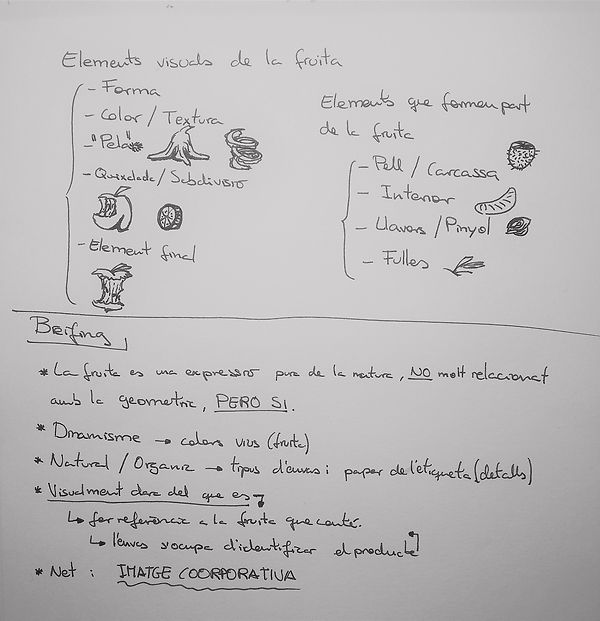 Elements visuals de la fruita
- Forma
- Color / Textura
- "Pela"
- Queixalada / Subdivisió
- Element final
Elements que formen part
de la fruita
- Pell / Carcassa
- Interior
- Llavors / Pinyol
- Fulles
Breifing
* La fruita es una expressió pura de la natura, NO molt relacionat
amb la geometria, PERO SI.
* Dinamisme → colors vius (fruita)
* Natural / Organic → tipus d'envas i paper de l'etiqueta (detalls)
* Visualment clara del que es
↳ fer referencia a la fruita que conté.
↳ l'envas s'ocupa d'identificar el producte
* Net i IMATGE COORPORATIVA